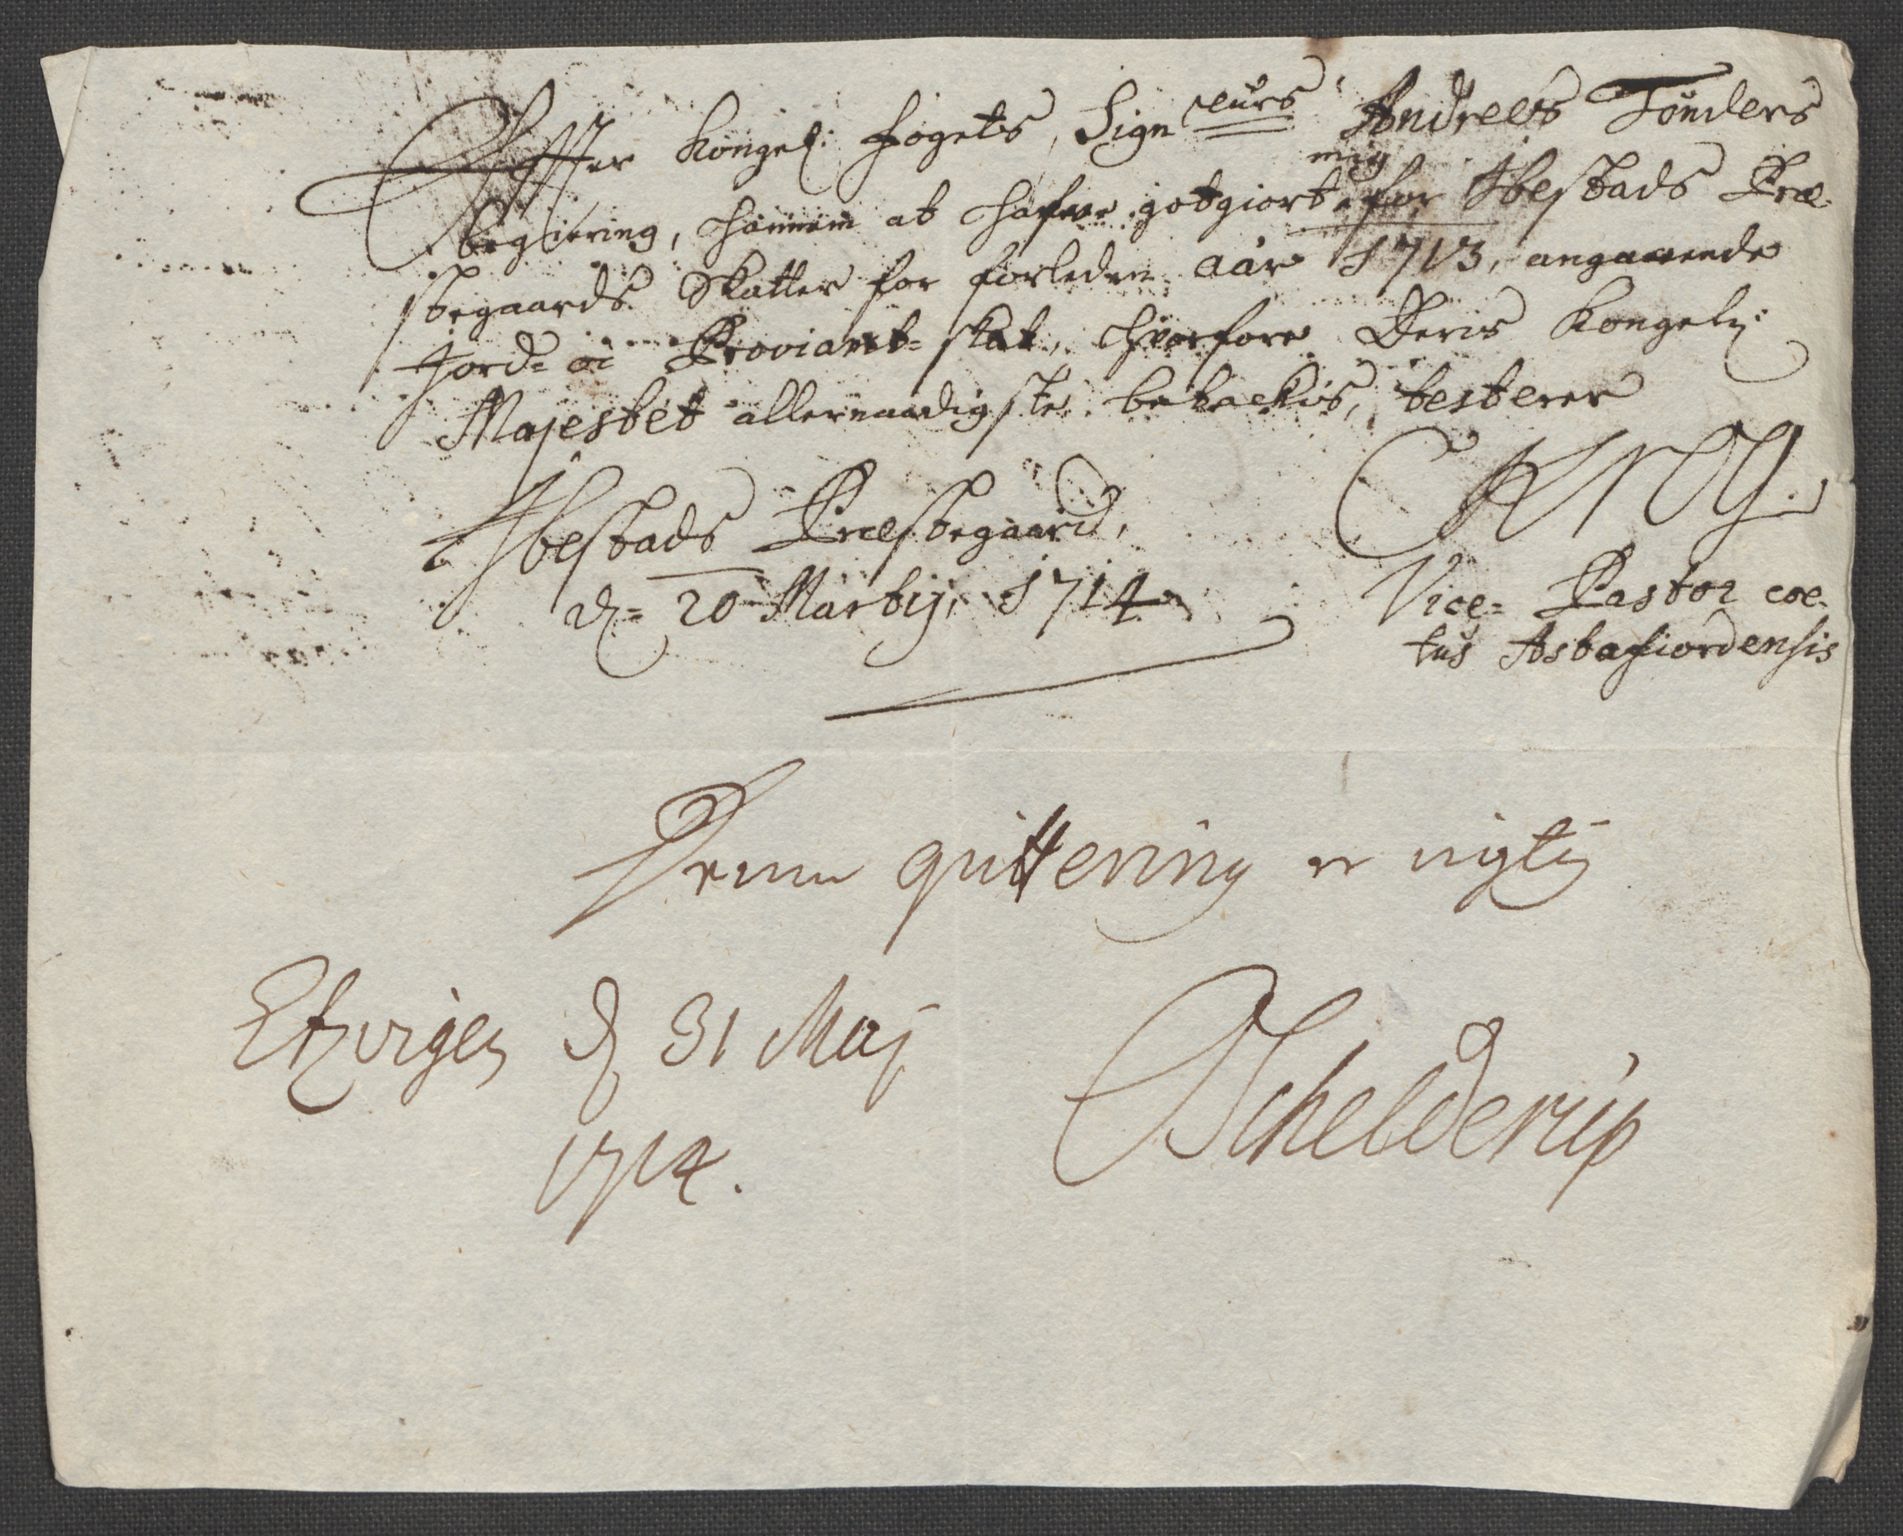 Effter Kongel: Fogets, Sign eurs Andrees Tønders
begiering, hannem at hafve gotgiort mig for Ibestads Præ-
stegaards Skatter for forleden aar 1713, angaaende
Jord= oc Proviant=skat, hvorfore Deris Kongely:
Majestet allernaadigste betackis, testerer
CKrog.
Ibestads Præstegaard,
d= 20 Martij, 1714
Vice= Pastor coe-
tus Astafiordensis
Denne quittering er rigtig
Etzvigen d 31 Maj
1714.
Schelderup